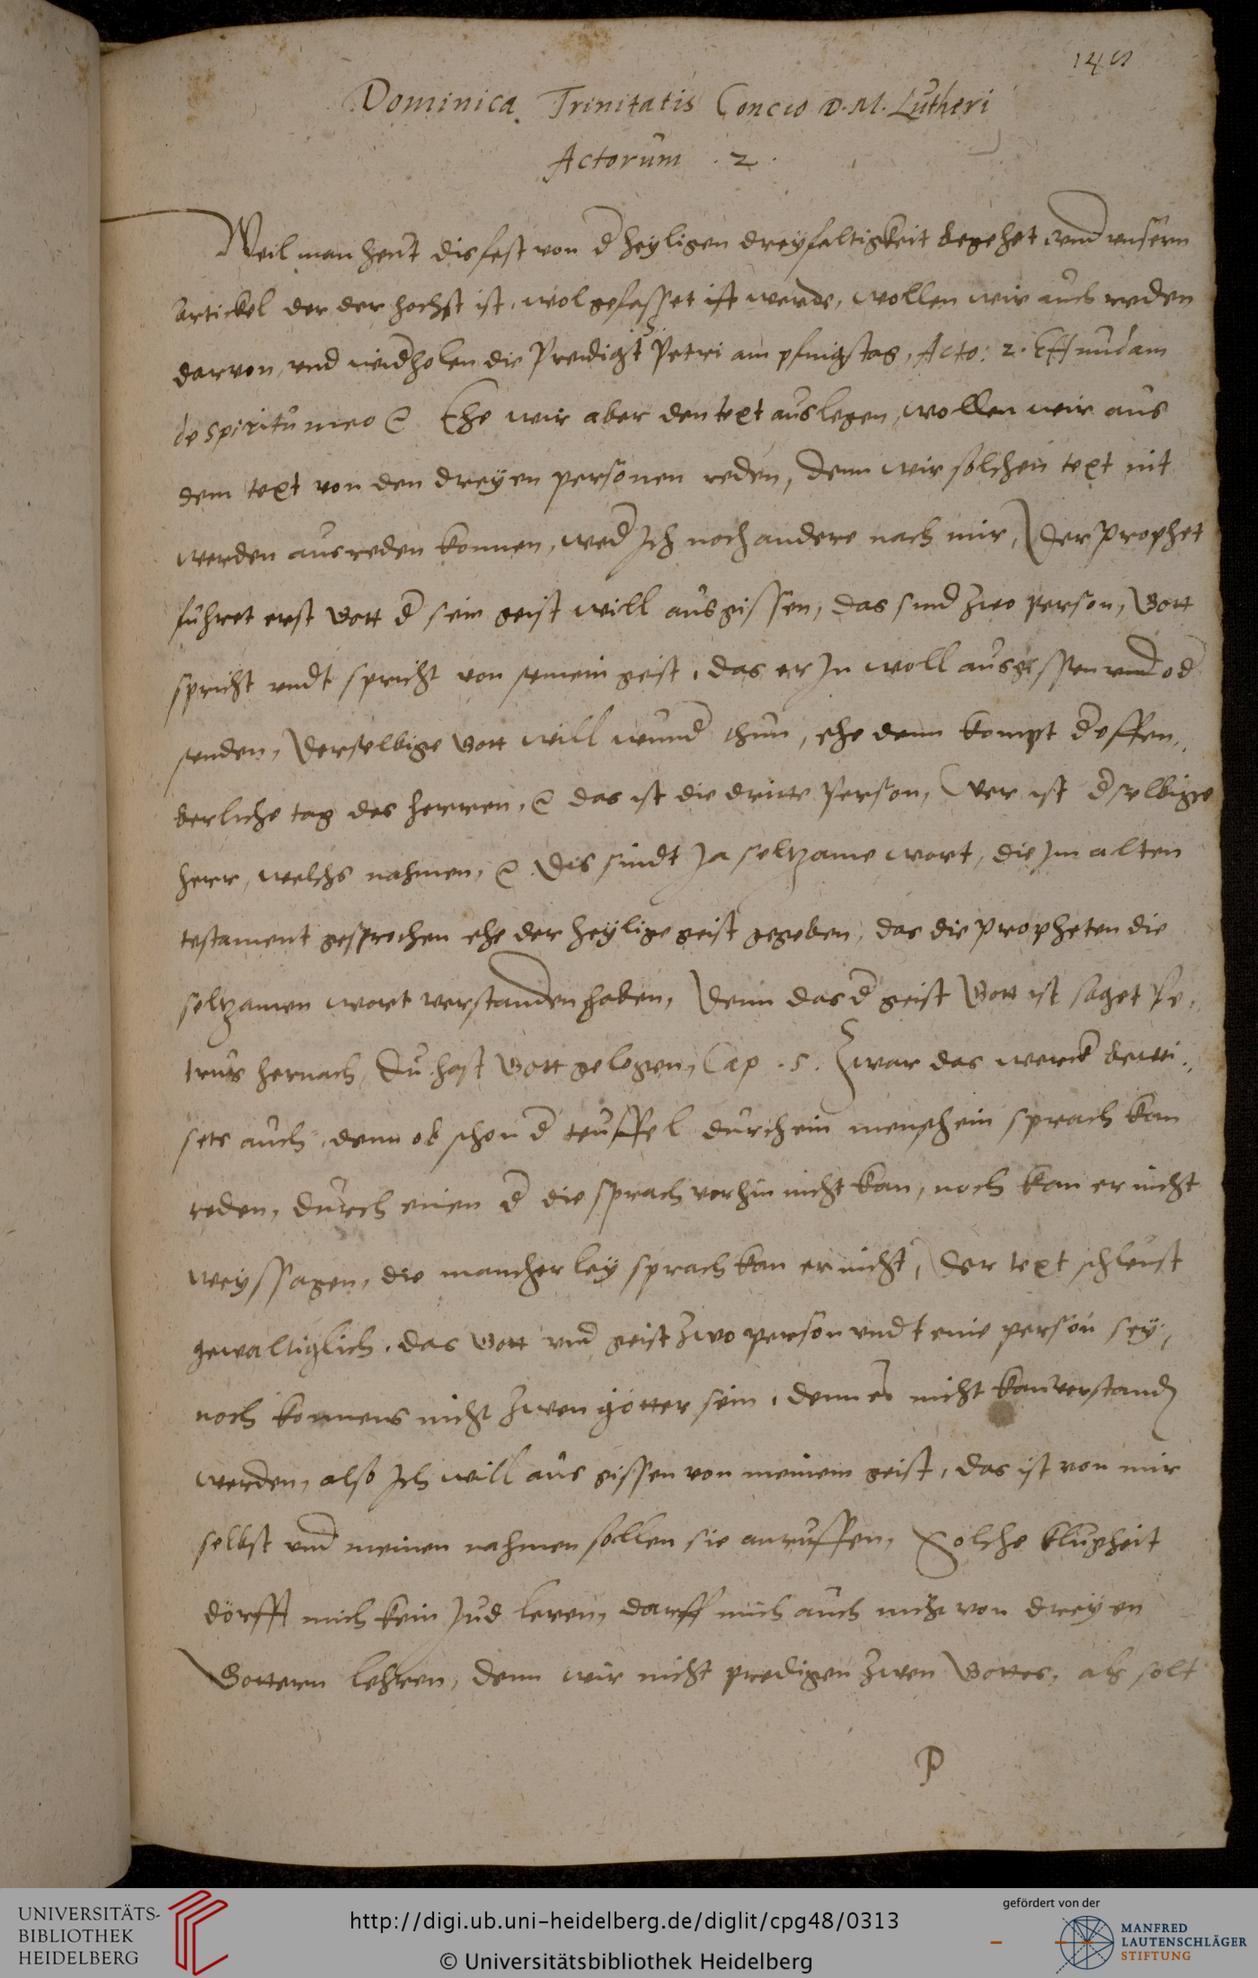 145
Dominica Trinitatis Concio D. M. Lutheri
Actorum . 2 .
Weil man heut dis fest von d heyligen dreyfaltigkeit begehet vnd vnsern
Artickel der der hochst ist, wol gefasset ist werde, wollen wir auch reden
darvon, vnd widholen die Predigt S. Petri am pfingstag, Acto: 2. Effundam
de spiritu meo Ehe wir aber den text auslegen, wollen wir aus
dem text von den dreyen personen reden, denn wir solchen text nit
werden ausreden konnen, wed Ich noch andere nach mir, Der Prophet
fuhret erst Gott d sein geist will ausgissen, das sind zwo Person, Gott
spricht vndt spricht von seinem geist, das er In woll ausgissen vnd od
senden, Derselbige Gott will wund thun, ehe denn kompt d offen,,
berliche tag des herren, das ist die dritte Person, Wer ist dselbige
herr, welchs nahmen, Dis sindt Ja seltzame wort, die Im alten
testament gesprochen ehe der heylige geist gegeben, das die propheten die
seltzamen wort verstanden haben, Denn das d geist Gott ist saget Pe,
trus hernach, Du hast Gott gelogen, Cap . 5 . Zwar das werck bewei,,
sets auch, denn ob schon d teuffel durch ein mensch ein sprach kan
reden, durch einen d die sprach vorhin nicht kan, noch kan er nicht
weyssagen, die mancherley sprach kan er nicht, Der text schleust
gewaltiglich, das Gott vnd geist zwo person vndt eine person sey,
noch konnens nicht zwen götter sein, denn es nicht kan verstand
werden, also Ich will aus gissen von meinem geist, das ist von mir
selbst vnd meinen nahmen sollen sie anruffen, Solche klugheit
dörfft mich kein Jud leren, darff mich auch nicht von dreyen
Gottern lehren, denn wir nicht predigen zwen Gottes, als solt
P
UNIVERSITÄTS-
BIBLIOTHEK
HEIDELBERG
http://digi.ub.uni-heidelberg.de/diglit/cpg48/0313
© Universitätsbibliothek Heidelberg
gefördert von der
MANFRED
LAUTENSCHLÄGER
STIFTUNG